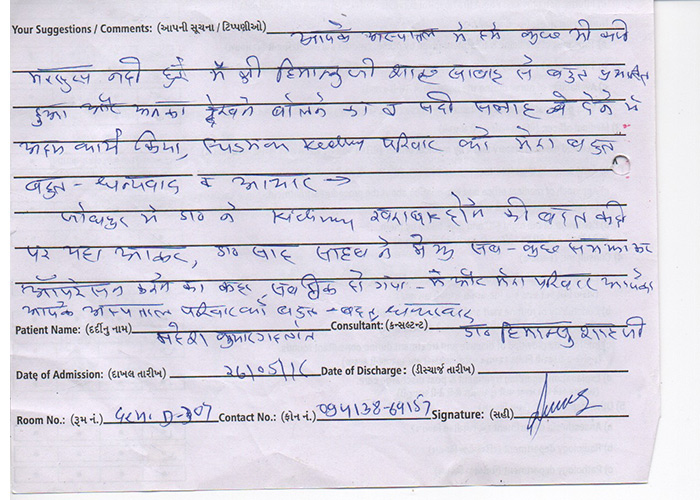 Your Suggestions / Comments: (આપની સૂચના / ટિપ્પણીઓ) आपके अस्पताल मे हमे कुछ भी कमी
महसुस नही हुई मै श्री हिमान्शु जी शाह साहब से बहुत प्रभावित
हुआ और उनका देखने बोलने का व सही सलाह के देने मे
अहम कार्य किया, परिवार को मेरा बहुत
बहुत - धन्यवाद व आभार →
जोधपुर मे डा० ने Kidney खराब होने की बात कही
पर यहा आकर, डा० शाह साहब ने मुझे सब - कुछ समझाकर
ऑपरेशन करने का कहा, सब ठीक हो गया - मै और मेरा परिवार आपका
आपके अस्पताल परिवार को बहुत - बहुत धन्यवाद
Patient Name: (દર્દીનું નામ) महेश कुमार गहलोत Consultant: (કન્સલ્ટન્ટ) डा० हिमान्शु शाह जी
Date of Admission: (દાખલ તારીખ) 26/05/16 Date of Discharge: (ડીસ્ચાર્જ તારીખ)
Room No.: (રૂમ નં.) D-307 Contact No.: (ફોન નં.) 094138-69157 Signature: (સહી)